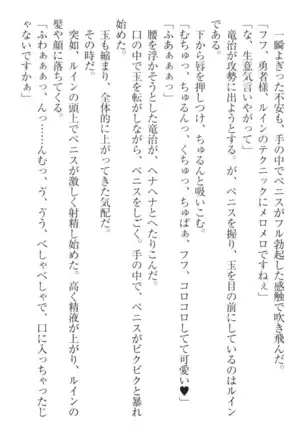 一瞬よぎった不安も、手の中でペニスがフル勃起した感触で吹き飛んだ。
「フフ、勇者様、ルインのテクニックにメロメロですねぇ」
「な、生意気言いやがって」
竜治が攻勢に出ようとする。が、ペニスを握り、玉を目の前にしているのはルイン
である。
下から唇を押しつけ、ちゅるんと吸いこむ。
「むちゅっ、ちゅるんっ、くちゅっ、ちゅばぁ、フフ、コロコロしてて可愛い♥」
「ふあぁぁぁっ」
腰を浮かそうとした竜治が、ヘナヘナとへたりこんだ。
口の中で玉を転がしながら、ペニスをしごく。手の中で、ペニスがビクビクと暴れ
始めた。
玉も縮まり、全体的に上がってきた気配だ。
その時だ。
突如、ルインの頭上でペニスが激しく射精し始めた。高く精液が上がり、ルインの
髪や顔に落ちてくる。
「ふわぁぁぁっ、んっ……んむっ、う、ぅう、べしゃべしゃで、口に入っちゃったじ
ゃないですかぁ」